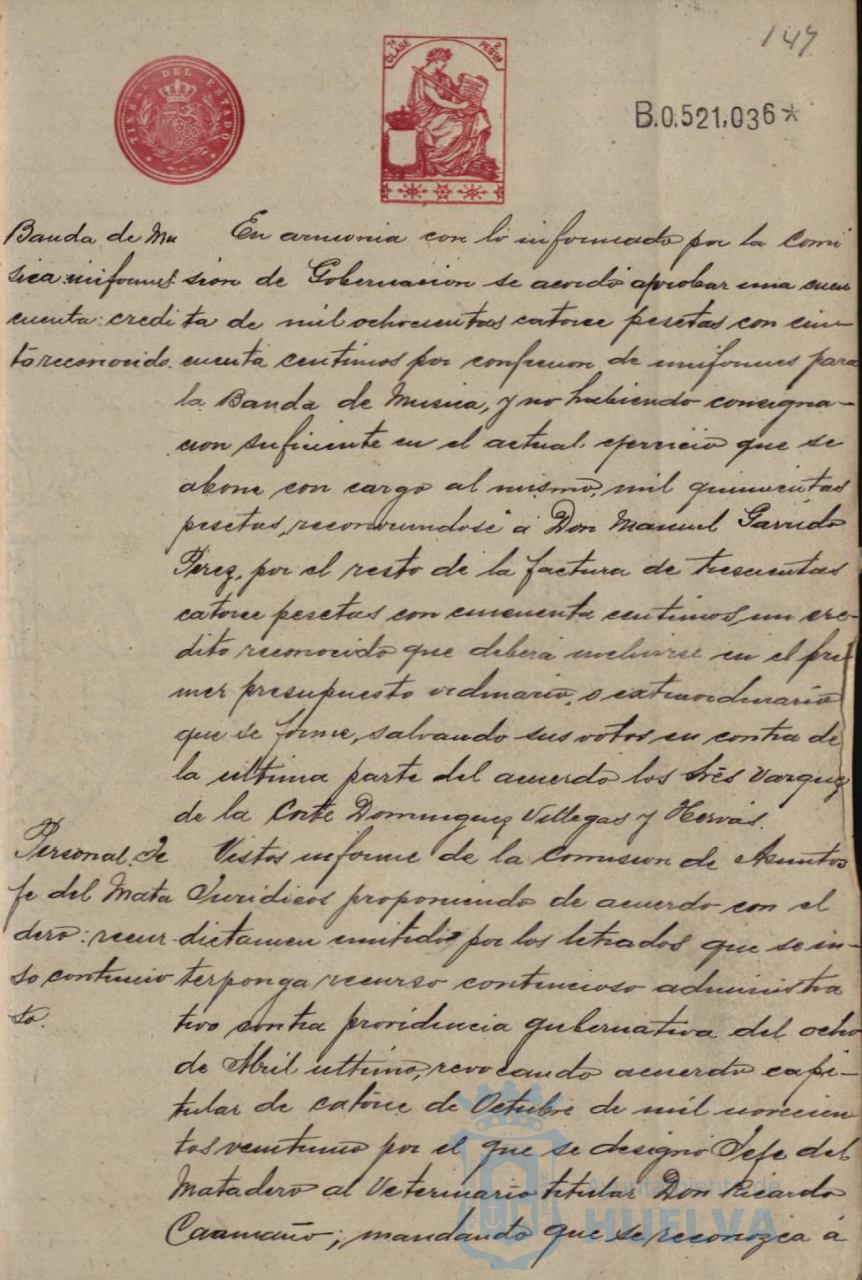 147
TIMBRE DEL ESTADO
7ª CLASE
2 PESETAS
B.0.521.036*
Banda de Mu
sica: uniformes
cuenta: credi
to reconocido.
En armonia con lo informado por la Comi
sion de Gobernacion se acordó aprobar una cuen
ta de mil ochocientas catorce pesetas con cin
cuenta centimos por confeccion de uniformes para
la Banda de Musica, y no habiendo consigna-
cion suficiente en el actual ejercicio que se
abone con cargo al mismo, mil quinientas
pesetas, reconociendose á Don Manuel Garrido
Perez, por el resto de la factura de trescientas
catorce pesetas con cincuenta centimos, un cre-
dito reconocido que deberá incluirse en el pri
mer presupuesto ordinario, o extraordinario
que se forme, salvando sus votos en contra de
la ultima parte del acuerdo los Srés Vazquez
de la Corte Dominguez Villegas y Hervás.
Personal. Je
fe del Mata
dero: recur
so contencio
so.
Vistos informe de la Comision de Asuntos
Juridicos proponiendo de acuerdo con el
dictamen emitido por los letrados que se in-
terponga recurso contencioso administra
tivo contra providencia gubernativa del ocho
de Abril ultimo, revocando acuerdo capi-
tular de catorce de Octubre de mil novecien
tos veintiuno por el que se designó Jefe del
Matadero al Veterinario titular Don Ricardo
Caamaño; mandando que se reconozca á
Ayuntamiento de
HUELVA